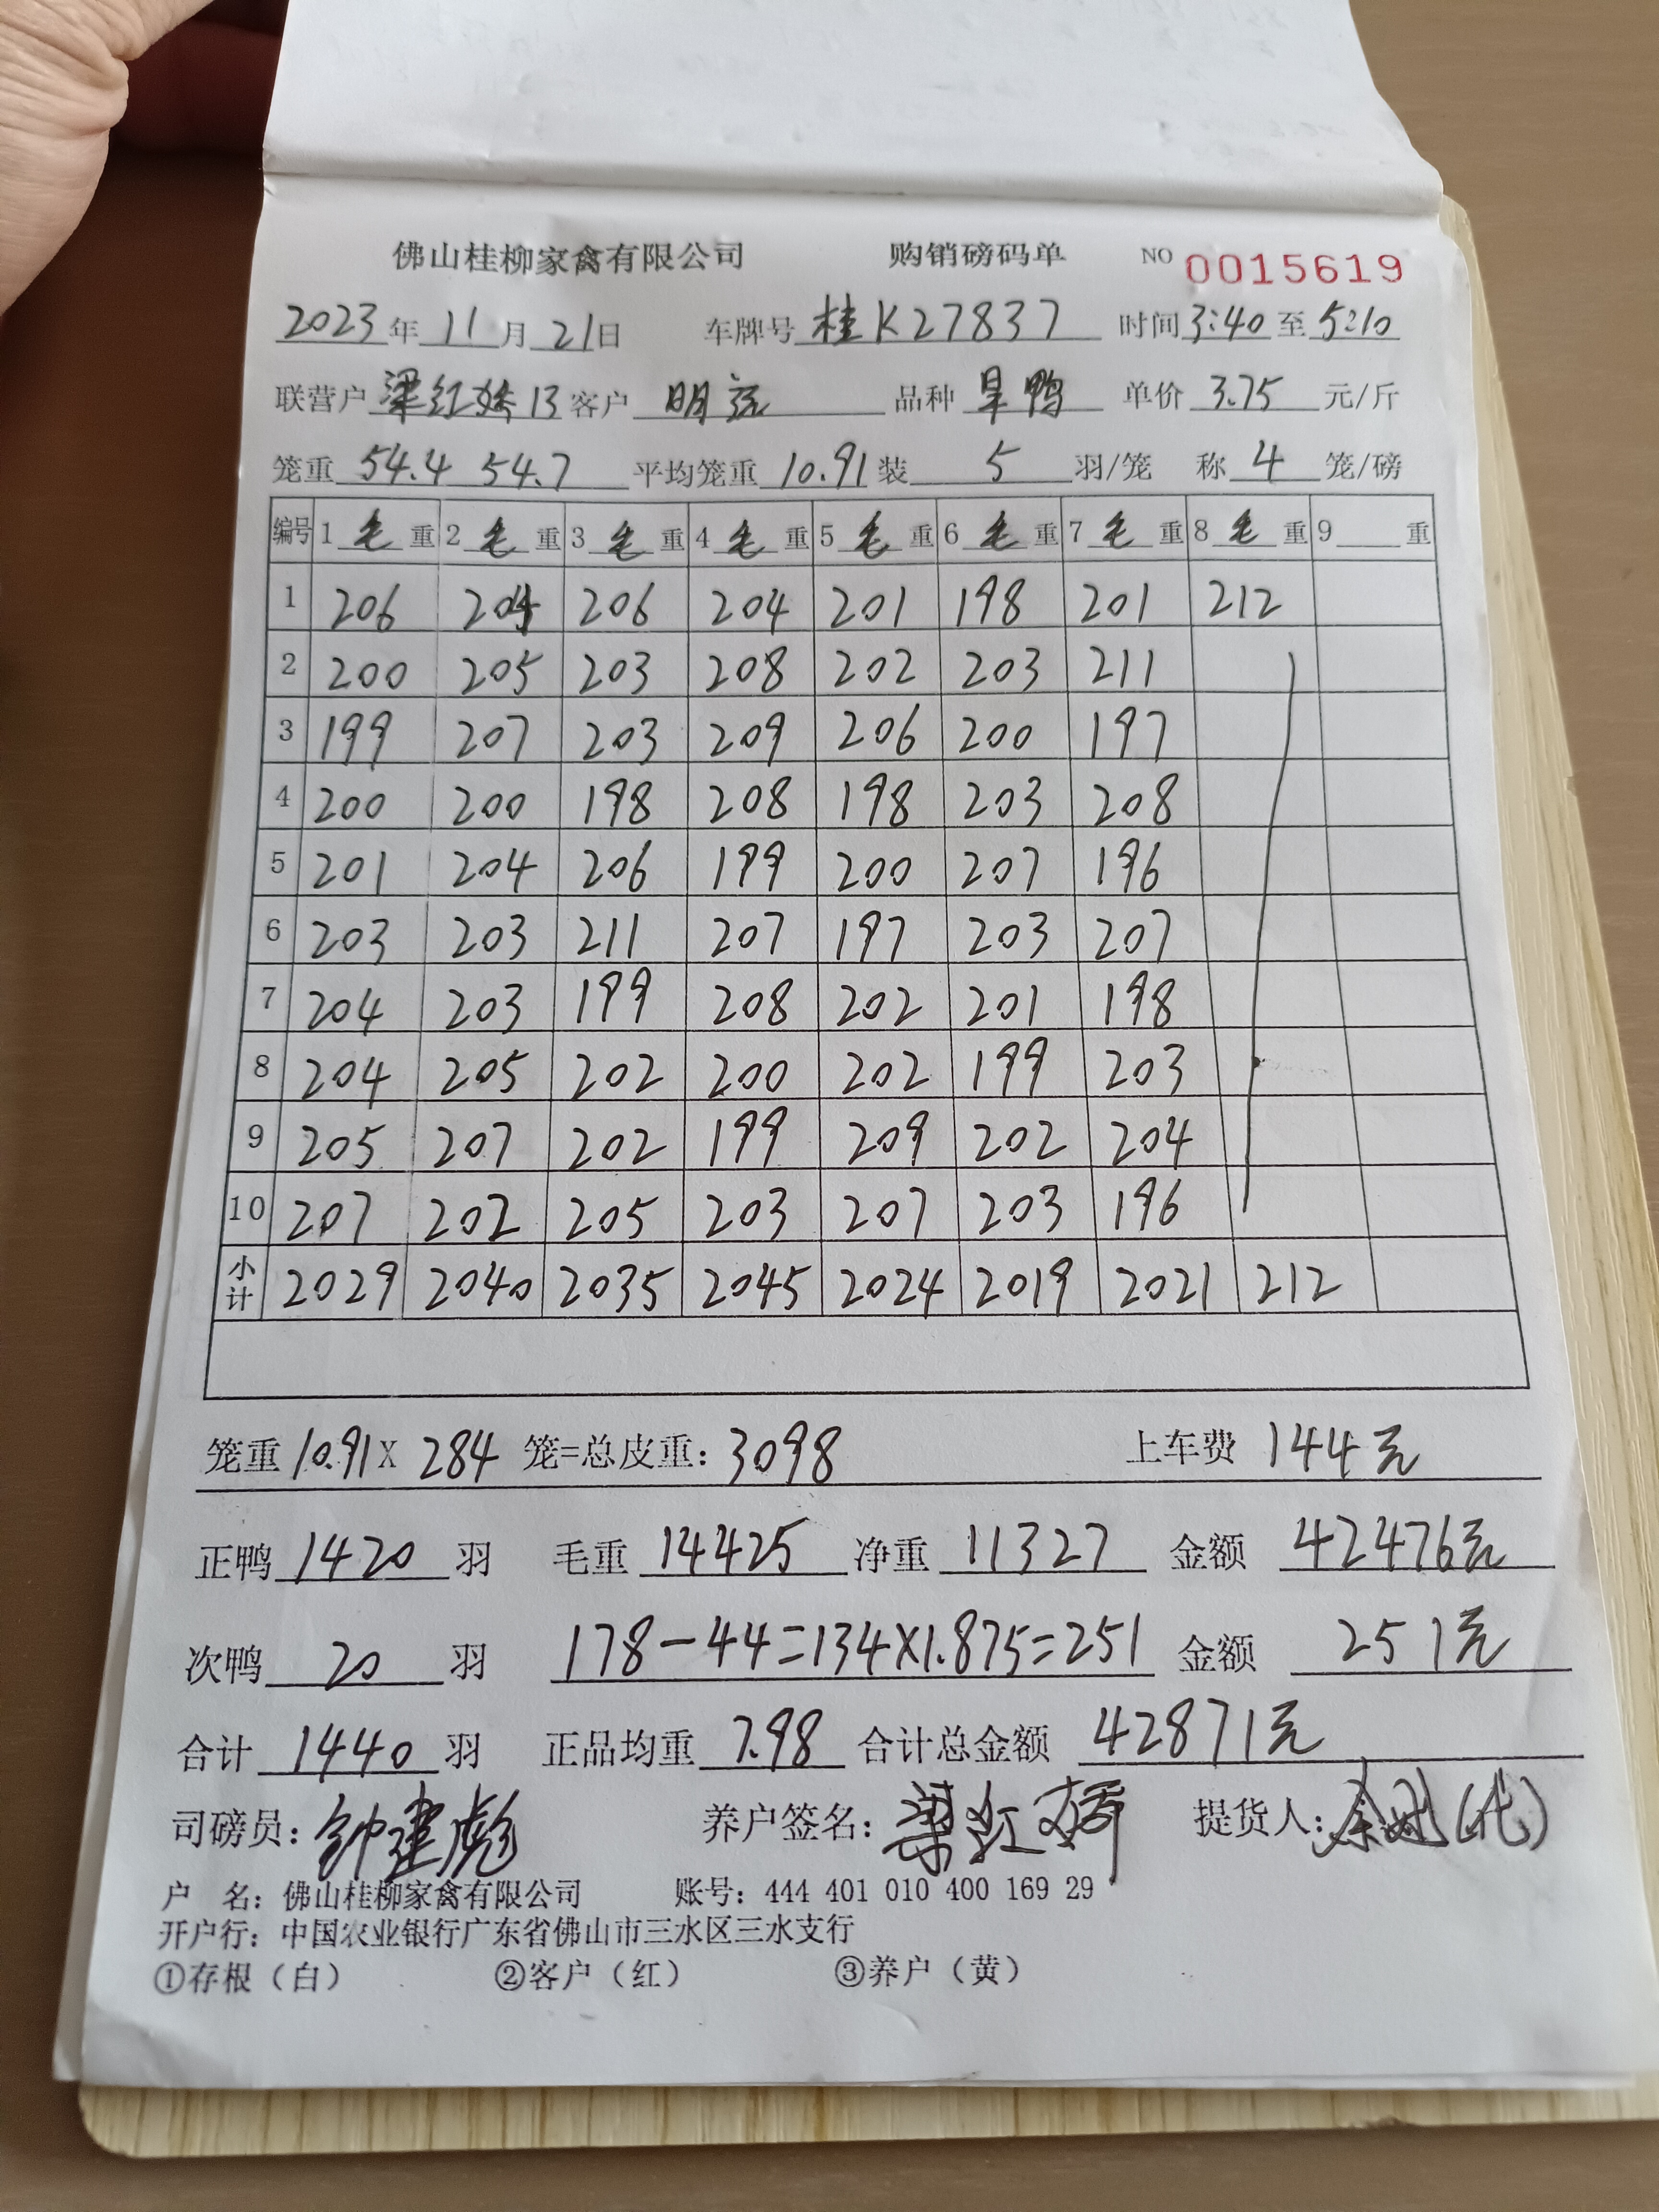 佛山桂柳家禽有限公司 购销磅码单 NO 0015619
2023年11月21日 车牌号桂K27837 时间3:40至5:10
联营户梁红娇13客户 明 品种旱鸭 单价3.75元/斤
笼重54.4 54.7 平均笼重10.91装5羽/笼 称4笼/磅
编号 1毛重 2毛重 3毛重 4毛重 5毛重 6毛重 7毛重 8毛重 9重
1 206 204 206 204 201 198 201 212
2 200 205 203 208 202 203 211
3 199 207 203 209 206 200 197
4 200 200 198 208 198 203 208
5 201 204 206 199 200 207 196
6 203 203 211 207 197 203 207
7 204 203 199 208 202 201 198
8 204 205 202 200 202 199 203
9 205 207 202 199 209 202 204
10 207 202 205 203 207 203 196
小计 2029 2040 2035 2045 2024 2019 2021 212
笼重10.91X284笼=总皮重:3098 上车费144元
正鸭1420羽 毛重14425净重11327 金额42476元
次鸭20羽 178-44=134X1.875=251 金额251元
合计1440羽 正品均重7.98合计总金额42871元
司磅员:钟建彪 养户签名:梁红娇 提货人:余(代)
户 名:佛山桂柳家禽有限公司 账号:444 401 010 400 169 29
开户行:中国农业银行广东省佛山市三水区三水支行
①存根(白) ②客户(红) ③养户(黄)